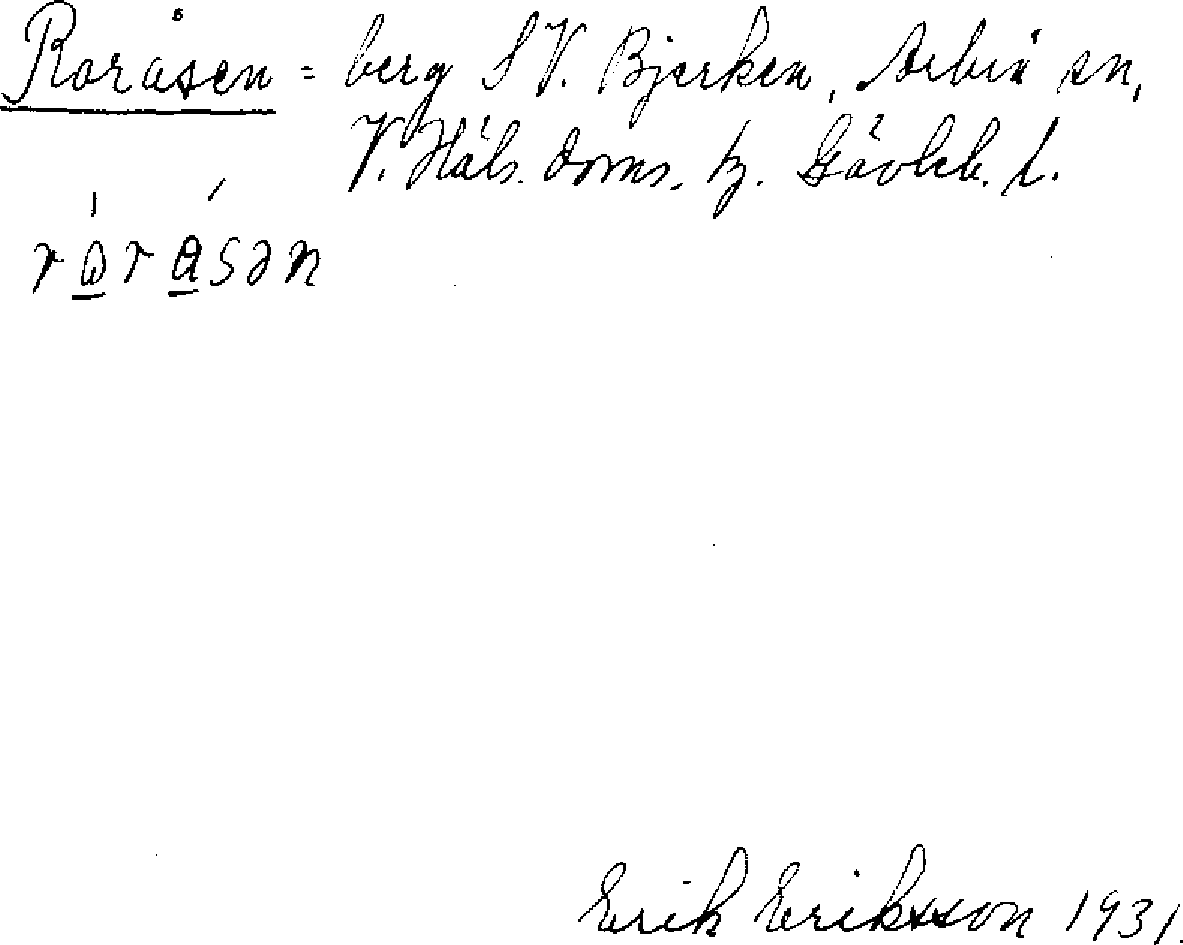 Roråsen = berg SV. Bjerken, Arbrå sn,
V. Häls. doms. tg. Gävleb. l.
rɷrɑsən
Erik Eriksson 1931.